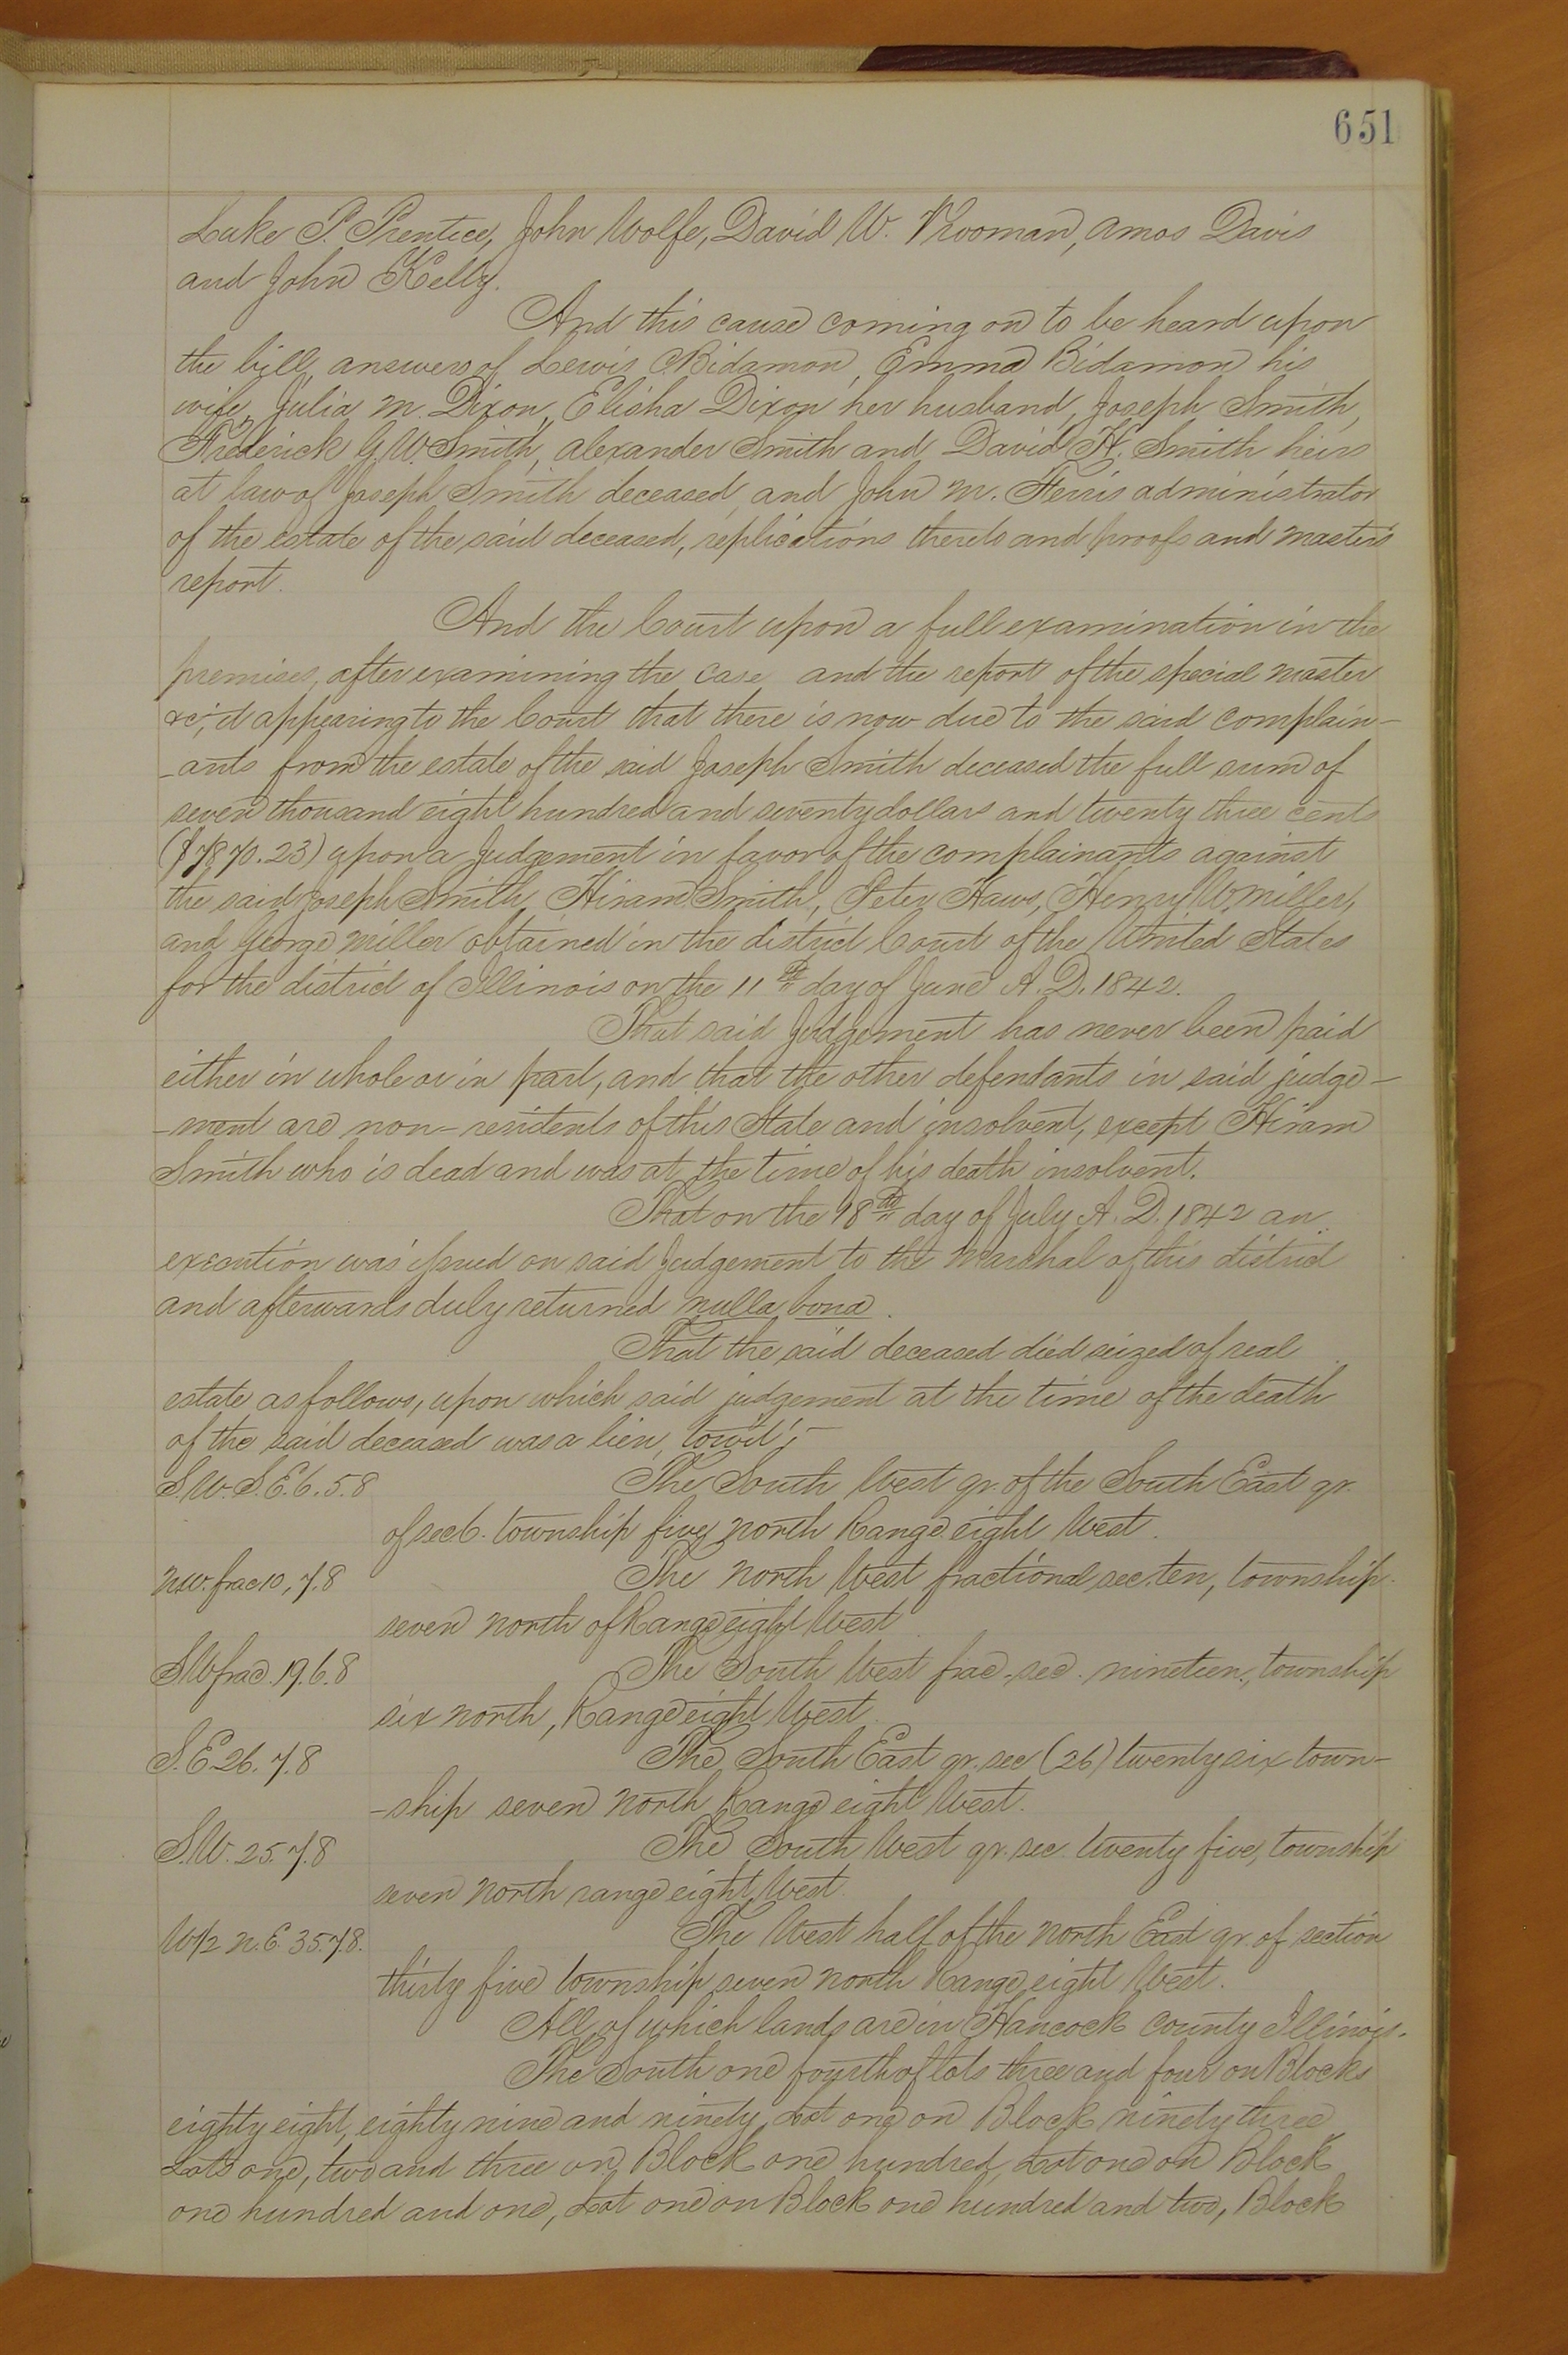 651
Luke P. Prentice, John Wolfe, David W. Vrooman, Amos Davis
and John Kelly.
And this cause coming on to be heard upon
the bill, answers of Lewis Bidamon, Emma Bidamon his
wife, Julia M. Dixon, Elisha Dixon her husband, Joseph Smith,
Frederick G. W. Smith, Alexander Smith and David H. Smith heirs
at law of Joseph Smith deceased, and John M. Ferris administrator
of the estate of the said deceased, replications thereto and proofs and masters
report.
And the Court upon a full examination in the
premises, after examining the case and the report of the special master
&c; it appearing to the Court that there is now due to the said complain-
-ants from the estate of the said Joseph Smith deceased the full sum of
seven thousand eight hundred and seventy dollars and twenty three cents
($7870.23) upon a Judgement in favor of the complainants against
the said Joseph Smith, Hiram Smith, Peter Haws, Henry W. Miller,
and George Miller obtained in the district Court of the United States
for the district of Illinois on the 11th day of June A. D. 1842.
That said Judgement has never been paid
either in whole or in part, and that the other defendants in said judge-
-ment are non-residents of this State and insolvent, except Hiram
Smith who is dead and was at the time of his death insolvent.
That on the 18th day of July A. D. 1842 an
execution was issued on said Judgement to the Marshal of this district
and afterwards duly returned nulla bona.
That the said deceased died seized of real
estate as follows, upon which said judgement at the time of the death
of the said deceased was a lien, towit;-
S.W. S.E. 6. 5. 8 The South West qr. of the South East qr.
of sec 6. township five north Range eight West.
N.W. frac 10, 7. 8 The North West fractional sec. ten, township
seven north of Range eight West
S W frac. 19. 6. 8 The South West frac. sec. nineteen, township
six north, Range eight West.
S. E. 26. 7. 8 The South East qr. sec (26) twenty six town-
-ship seven North Range eight West.
S.W. 25. 7. 8 The South West qr. sec twenty five, township
seven north range eight West.
W 1/2 N. E. 35. 7. 8. The West half of the North East qr. of section
thirty five township seven north Range eight West.
All of which lands are in Hancock County Illinois.
The South one fourth of lots three and four on Blocks
eighty eight, eighty nine and ninety, Lot one on Block ninety three
Lots one, two and three on Block one hundred, Lot one on Block
one hundred and one, Lot one on Block one hundred and two, Block